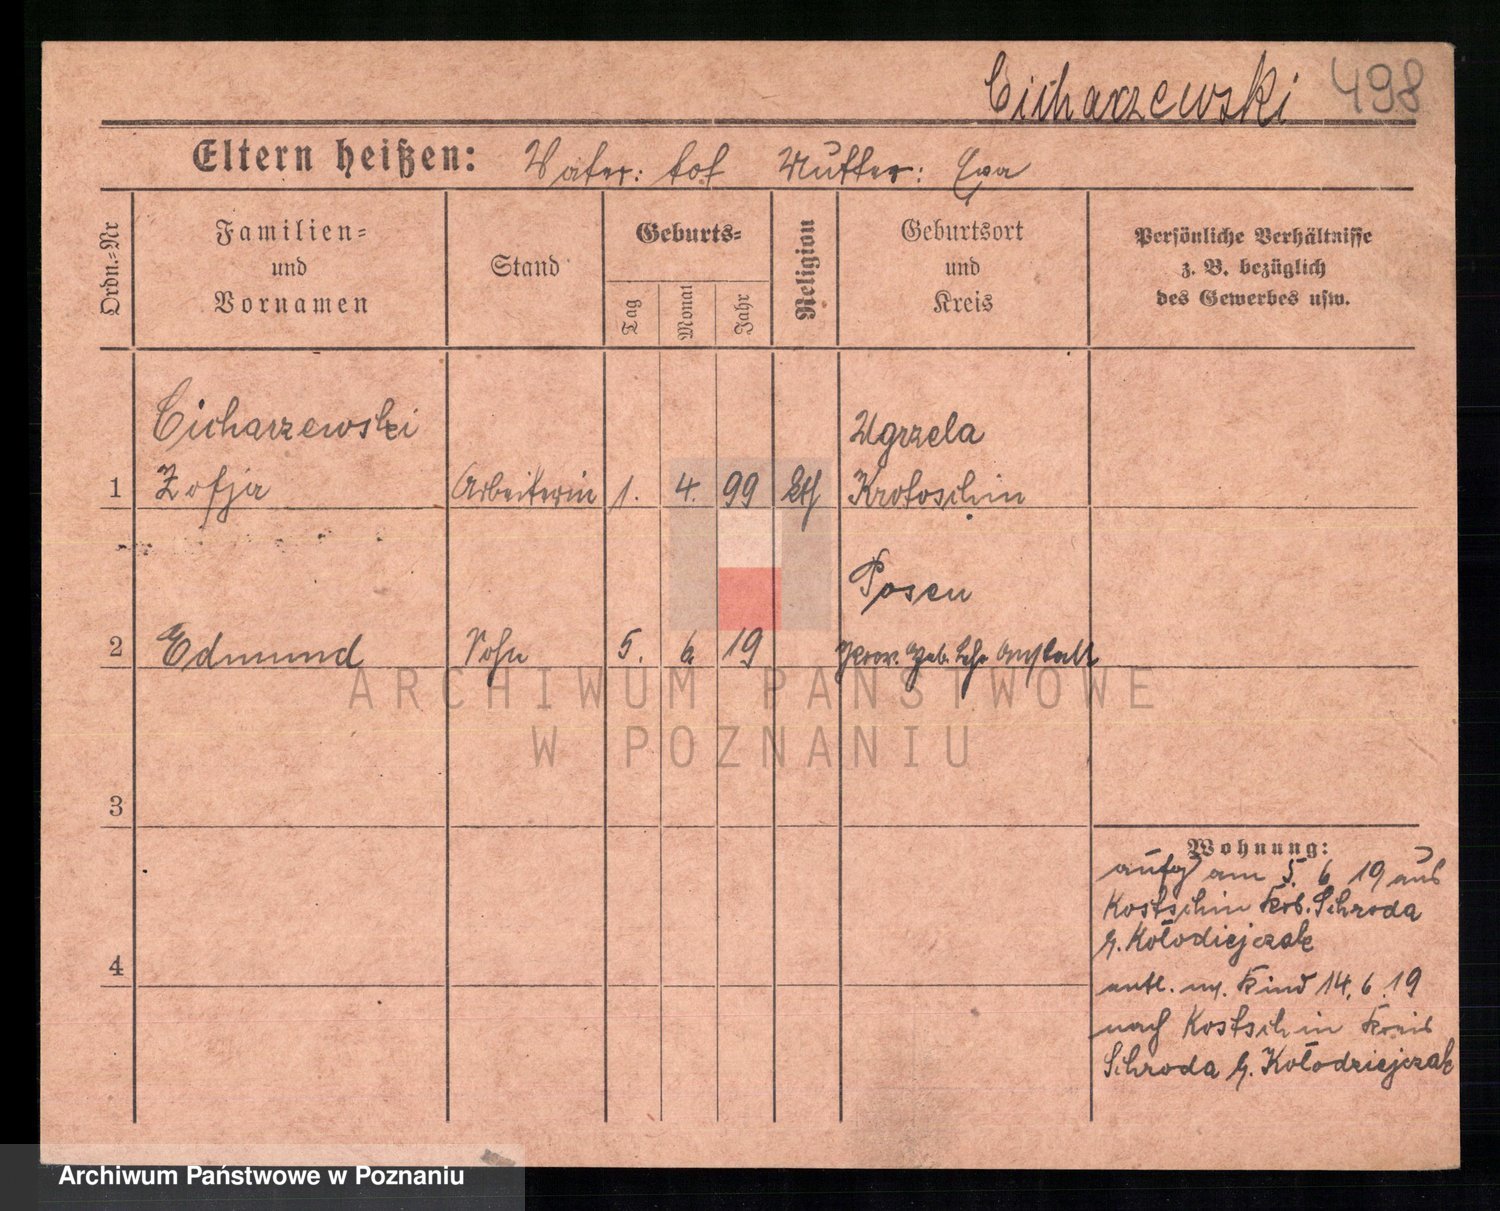 Cicharzewski 498
Eltern heißen: Vater: tot Mutter: Ewa
Ordn.-Nr
Familien-
und
Vornamen
Stand
Geburts-
Tag
Monat
Jahr
Religion
Geburtsort
und
Kreis
Persönliche Verhältnisse
z. B. bezüglich
des Gewerbes usw.
Cicharzewski Ugrzela
1 Zofja Arbeiterin 1. 4. 99 kth Krotoschin
Posen
2 Edmund Sohn 5. 6. 19 Prov. Heb. Lehr Anstalt
ARCHIWUM PAŃSTWOWE
W POZNANIU
3
4
Wohnung:
aufg am 5. 6 19 aus
Kostschin Krs. Schroda
b. Kołodiejczak
entl. m. Kind 14. 6. 19
nach Kostschin Kreis
Schroda b. Kołodziejczak
Archiwum Państwowe w Poznaniu